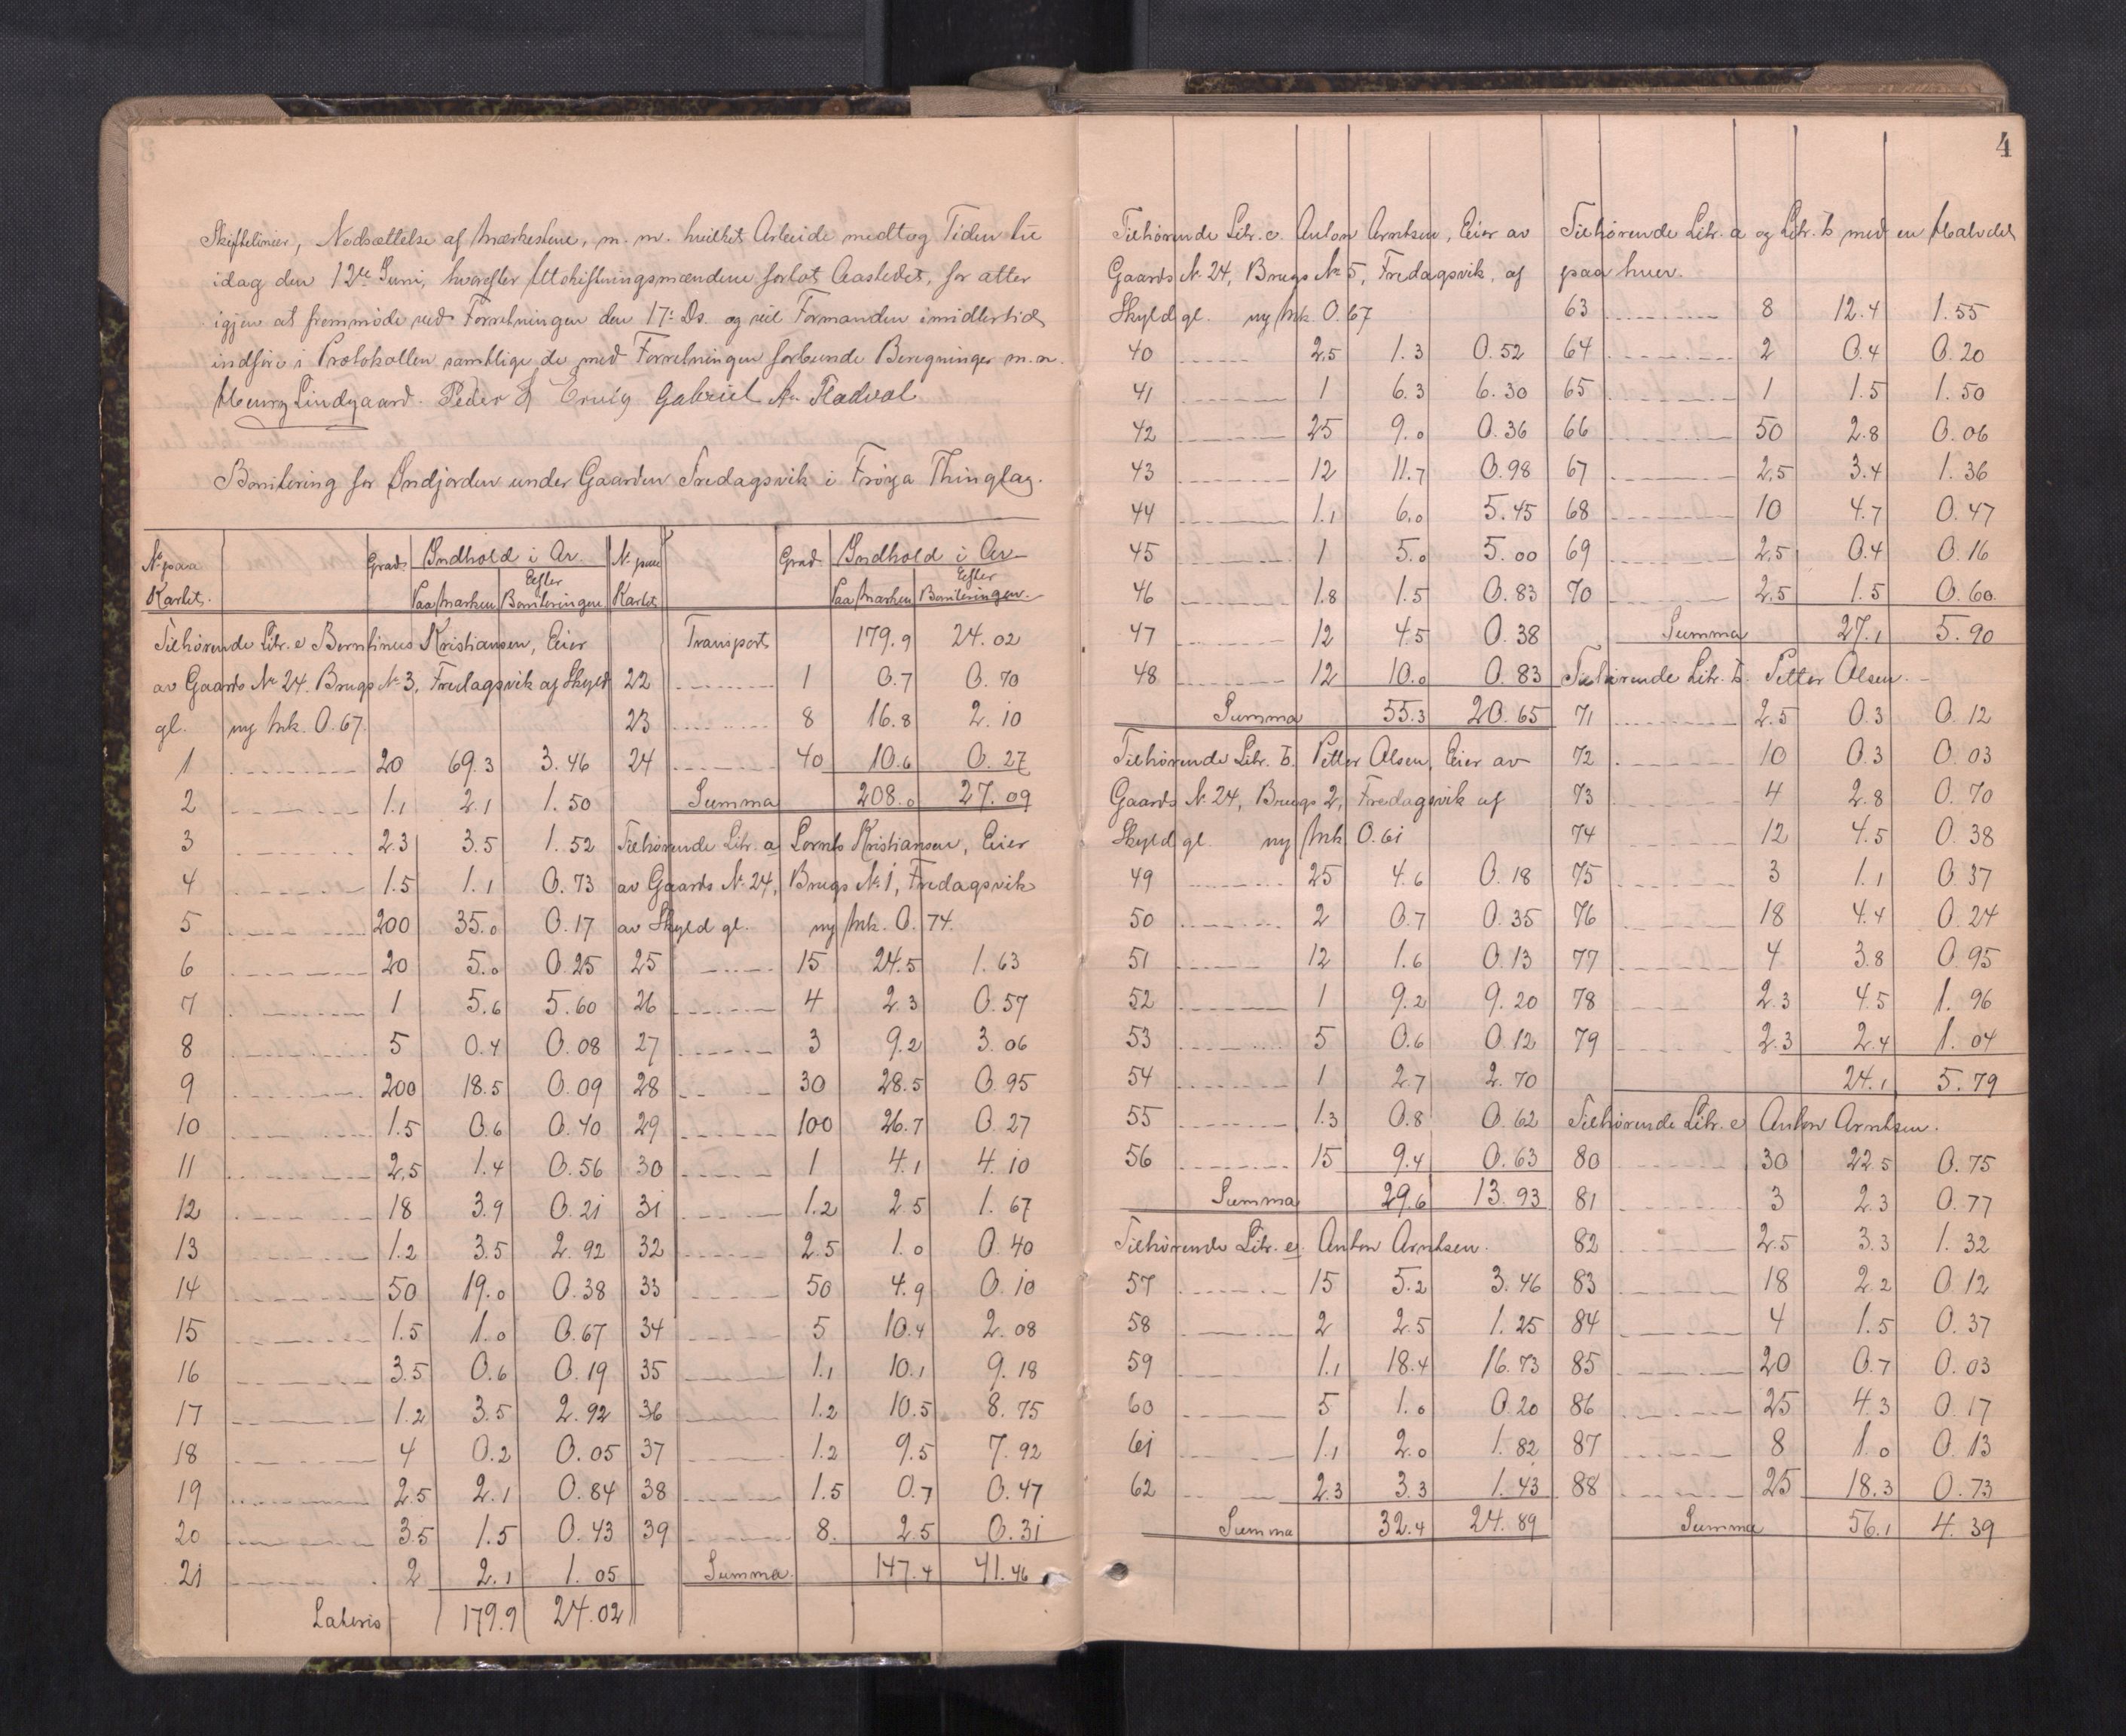 Skiftelinier, Nedsættelse af Mærkestene, m. m. hvilket Arbeide medtog Tiden til
idag den 12te Juni, hvorefter Utskiftningsmændene forlot Aastedet, for atter
igjen at fremmøde ved Forretningen den 17: Ds. og vil Formanden imidlertid
indføre i Protokollen samtlige de med Forretningen forbundne Beregninger m.m.
Meurg Lindgaard. Peder Gabriel A.
Bonitering for Indjorden under Gaarden Fredagsvik i Frøya Thinglag.
No paa Kartet. Grad. Indhold i Ar. Paa Marken Efter Boniteringen
No paa Kartet Grad Indhold i Ar Paa Marken Efter Boniteringen.
Tilhørende Litr. c Berntinus Kristiansen, Eier
av Gaards No 24. Brugs No 3, Fredagsvik af Skyld
gl. ny Mk. 0.67.
1 20 69.3 3.46
2 1.1 2.1 1.50
3 2.3 3.5 1.52
4 1.5 1.1 0.73
5 200 35.0 0.17
6 20 5.0 0.25
7 1 5.6 5.60
8 5 0.4 0.08
9 200 18.5 0.09
10 1.5 0.6 0.40
11 2.5 1.4 0.56
12 18 3.9 0.21
13 1.2 3.5 2.92
14 50 19.0 0.38
15 1.5 1.0 0.67
16 3.5 0.6 0.19
17 1.2 3.5 2.92
18 4 0.2 0.05
19 2.5 2.1 0.84
20 3.5 1.5 0.43
21 2 2.1 1.05
Lateris 179.9 24.02
Transport 179.9 24.02
22 1 0.7 0.70
23 8 16.8 2.10
24 40 10.6 0.27
Summa 208.0 27.09
Tilhørende Litr. a Lornts Kristiansen, Eier
av Gaards No 24, Brugs No 1, Fredagsvik
av Skyld gl. ny Mk. 0.74.
25 15 24.5 1.63
26 4 2.3 0.57
27 3 9.2 3.06
28 30 28.5 0.95
29 100 26.7 0.27
30 1 4.1 4.10
31 1.2 2.5 1.67
32 2.5 1.0 0.40
33 50 4.9 0.10
34 5 10.4 2.08
35 1.1 10.1 9.18
36 1.2 10.5 8.75
37 1.2 9.5 7.92
38 1.5 0.7 0.47
39 8. 2.5 0.31
Summa. 147.4 41.46
4
Tilhørende Litr. c. Anton Arntsen, Eier av
Gaards No 24, Brugs No 5, Fredagsvik, af
Skyld gl. ny Mk. 0.67
40 2.5 1.3 0.52
41 1 6.3 6.30
42 25 9.0 0.36
43 12 11.7 0.98
44 1.1 6.0 5.45
45 1 5.0 5.00
46 1.8 1.5 0.83
47 12 4.5 0.38
48 12 10.0 0.83
Summa 55.3 20.65
Tilhørende Litr. b. Petter Olsen, Eier av
Gaards No 24, Brugs 2, Fredagsvik af
Skyld gl. ny Mk 0.61
49 25 4.6 0.18
50 2 0.7 0.35
51 12 1.6 0.13
52 1 9.2 9.20
53 5 0.6 0.12
54 1 2.7 2.70
55 1.3 0.8 0.62
56 15 9.4 0.63
Summa 29.6 13.93
Tilhørende Litr. c. Anton Arntsen.
57 15 5.2 3.46
58 2 2.5 1.25
59 1.1 18.4 16.73
60 5 1.0 0.20
61 1.1 2.0 1.82
62 2.3 3.3 1.43
Summa 32.4 24.89
Tilhørende Litr. a og Litr. b med en Halvdel
paa hver.
63 8 12.4 1.55
64 2 0.4 0.20
65 1 1.5 1.50
66 50 2.8 0.06
67 2.5 3.4 1.36
68 10 4.7 0.47
69 2.5 0.4 0.16
70 2.5 1.5 0.60
Summa 27.1 5.90
Tilhørende Litr. b. Petter Olsen.
71 2.5 0.3 0.12
72 10 0.3 0.03
73 4 2.8 0.70
74 12 4.5 0.38
75 3 1.1 0.37
76 18 4.4 0.24
77 4 3.8 0.95
78 2.3 4.5 1.96
79 2.3 2.4 1.04
24.1 5.79
Tilhørende Litr. c Anton Arntsen.
80 30 22.5 0.75
81 3 2.3 0.77
82 2.5 3.3 1.32
83 18 2.2 0.12
84 4 1.5 0.37
85 20 0.7 0.03
86 25 4.3 0.17
87 8 1.0 0.13
88 25 18.3 0.73
Summa 56.1 4.39